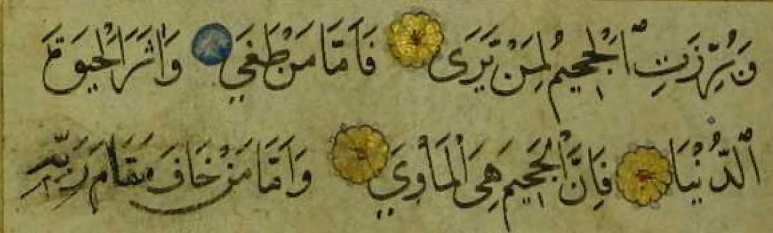 وَبُرِّزَتِ ٱلْجَحِيمُ لِمَنْ يَّرَى فَاَمَّا مَنْ طَغَى وَاٰثَرَ الْحَيٰوةَ
ٱلدُّنْيَا فَاِنَّ الْجَحِيمَ هِىَ الْمَاْوَى وَاَمَّا مَنْ خَافَ مَقَامَ رَبِّهِ